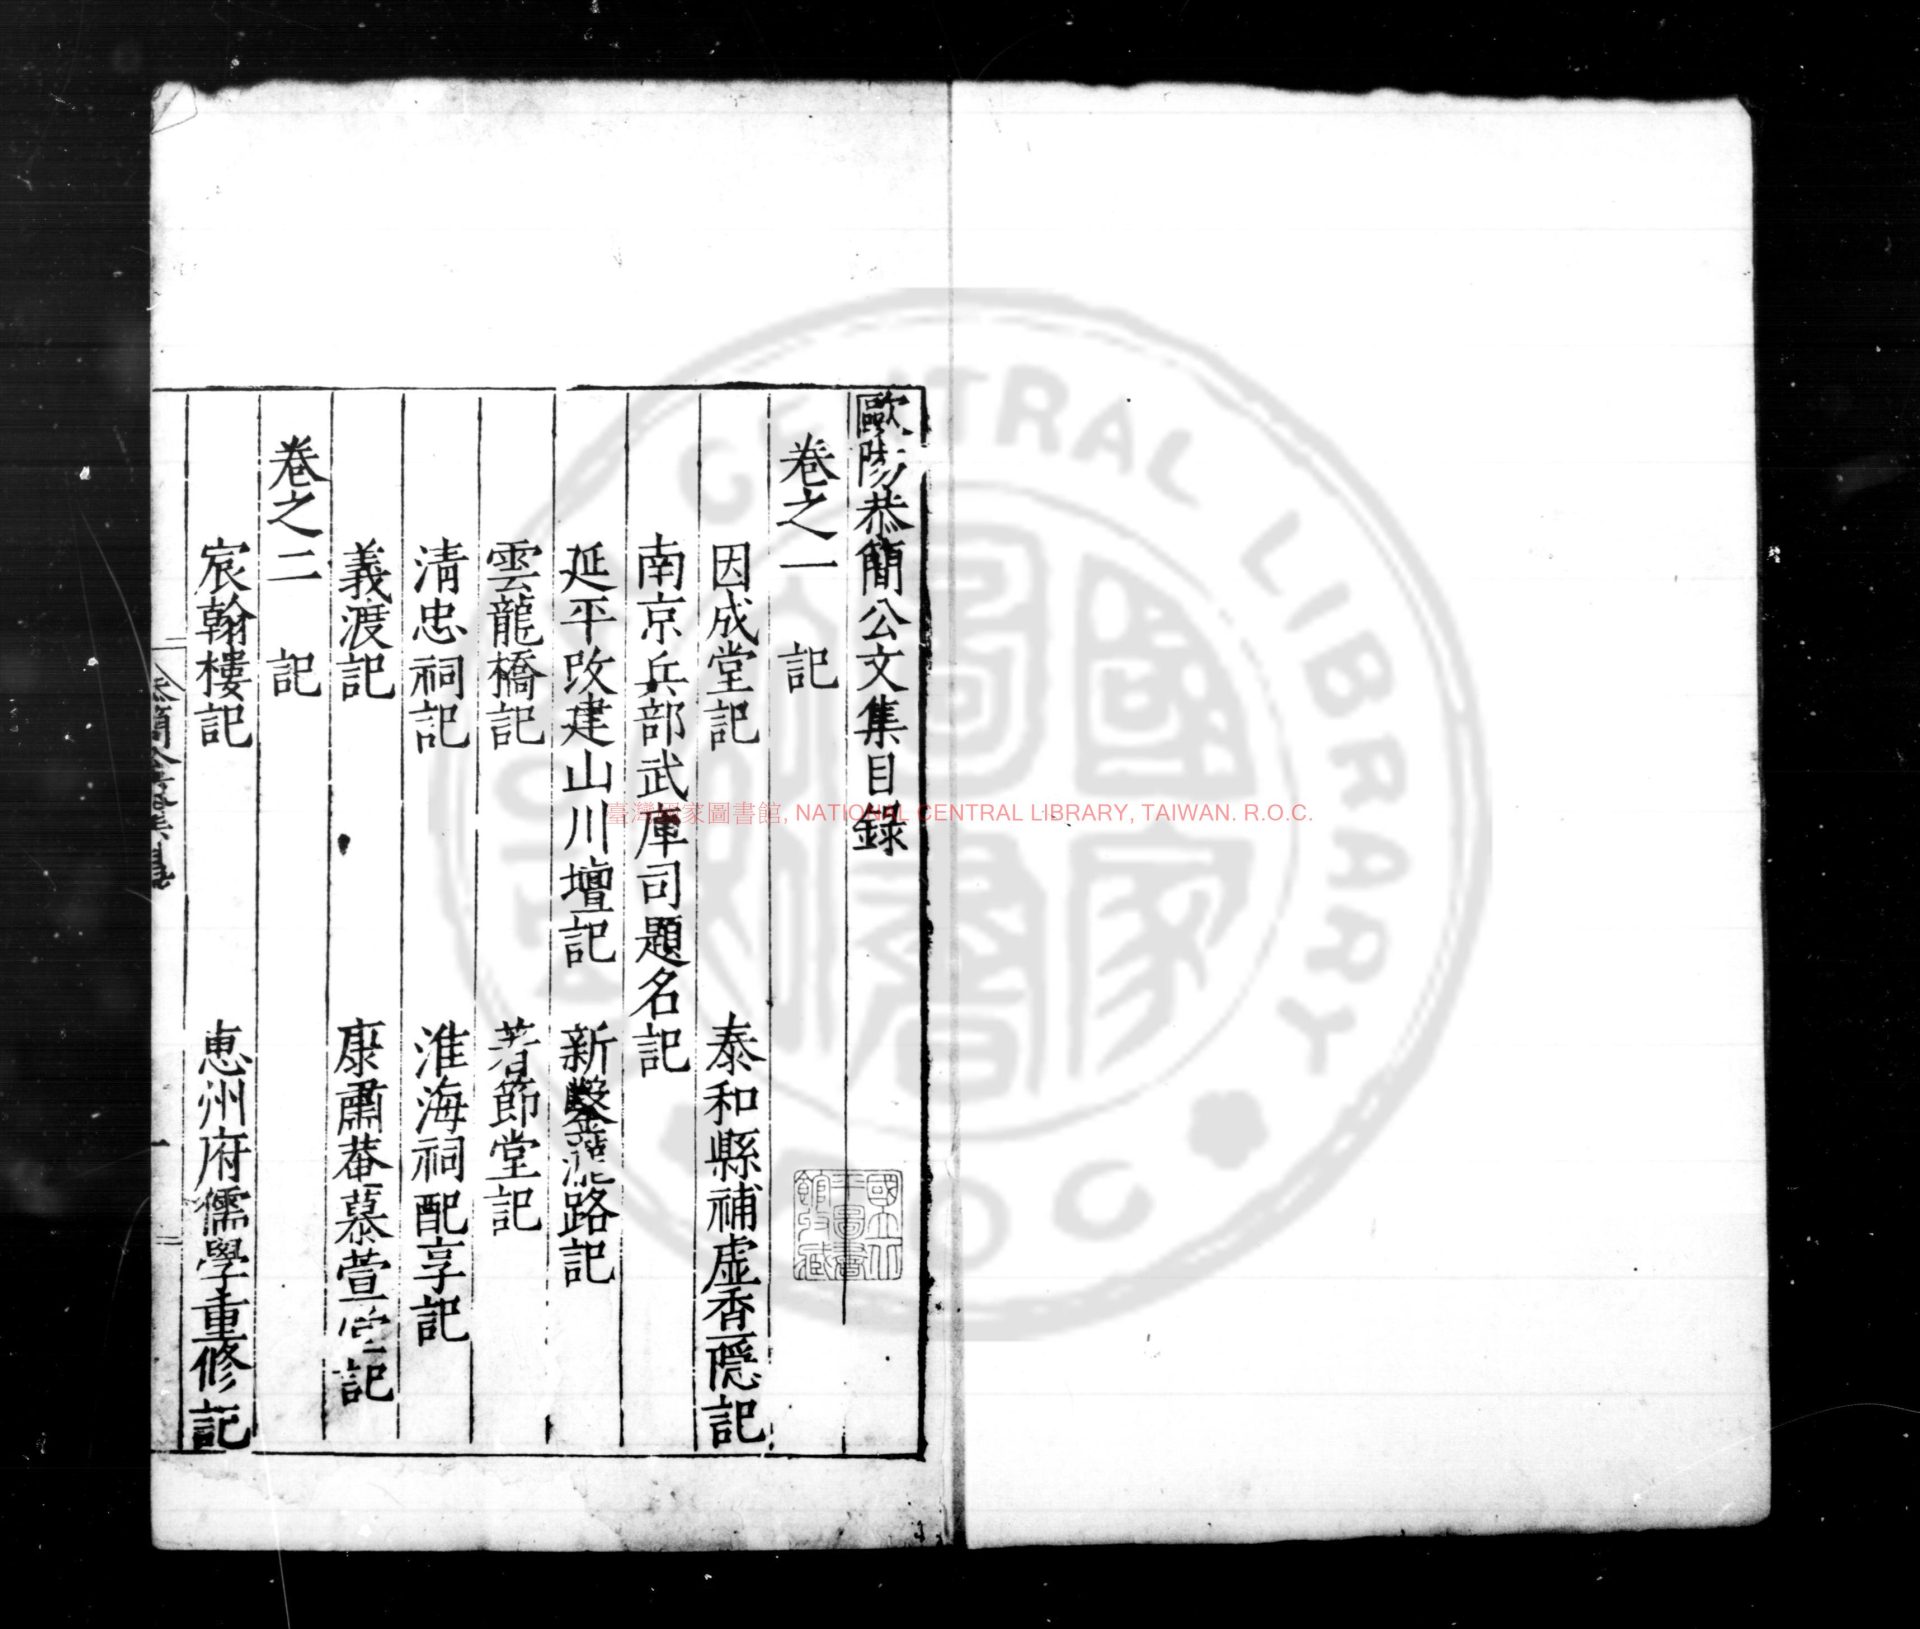 歐陽恭簡公文集目錄
卷之一　記
因成堂記　泰和縣補虛香隱記
南京兵部武庫司題名記
延平改建山川壇記　新鑿灘路記
雲龍橋記　著節堂記
清忠祠記　淮海祠配享記
義渡記　康肅菴慕萱堂記
卷之二　記
宸翰樓記　惠州府儒學重修記
一
國立北平圖書館收藏
臺灣國家圖書館, NATIONAL CENTRAL LIBRARY, TAIWAN. R.O.C.